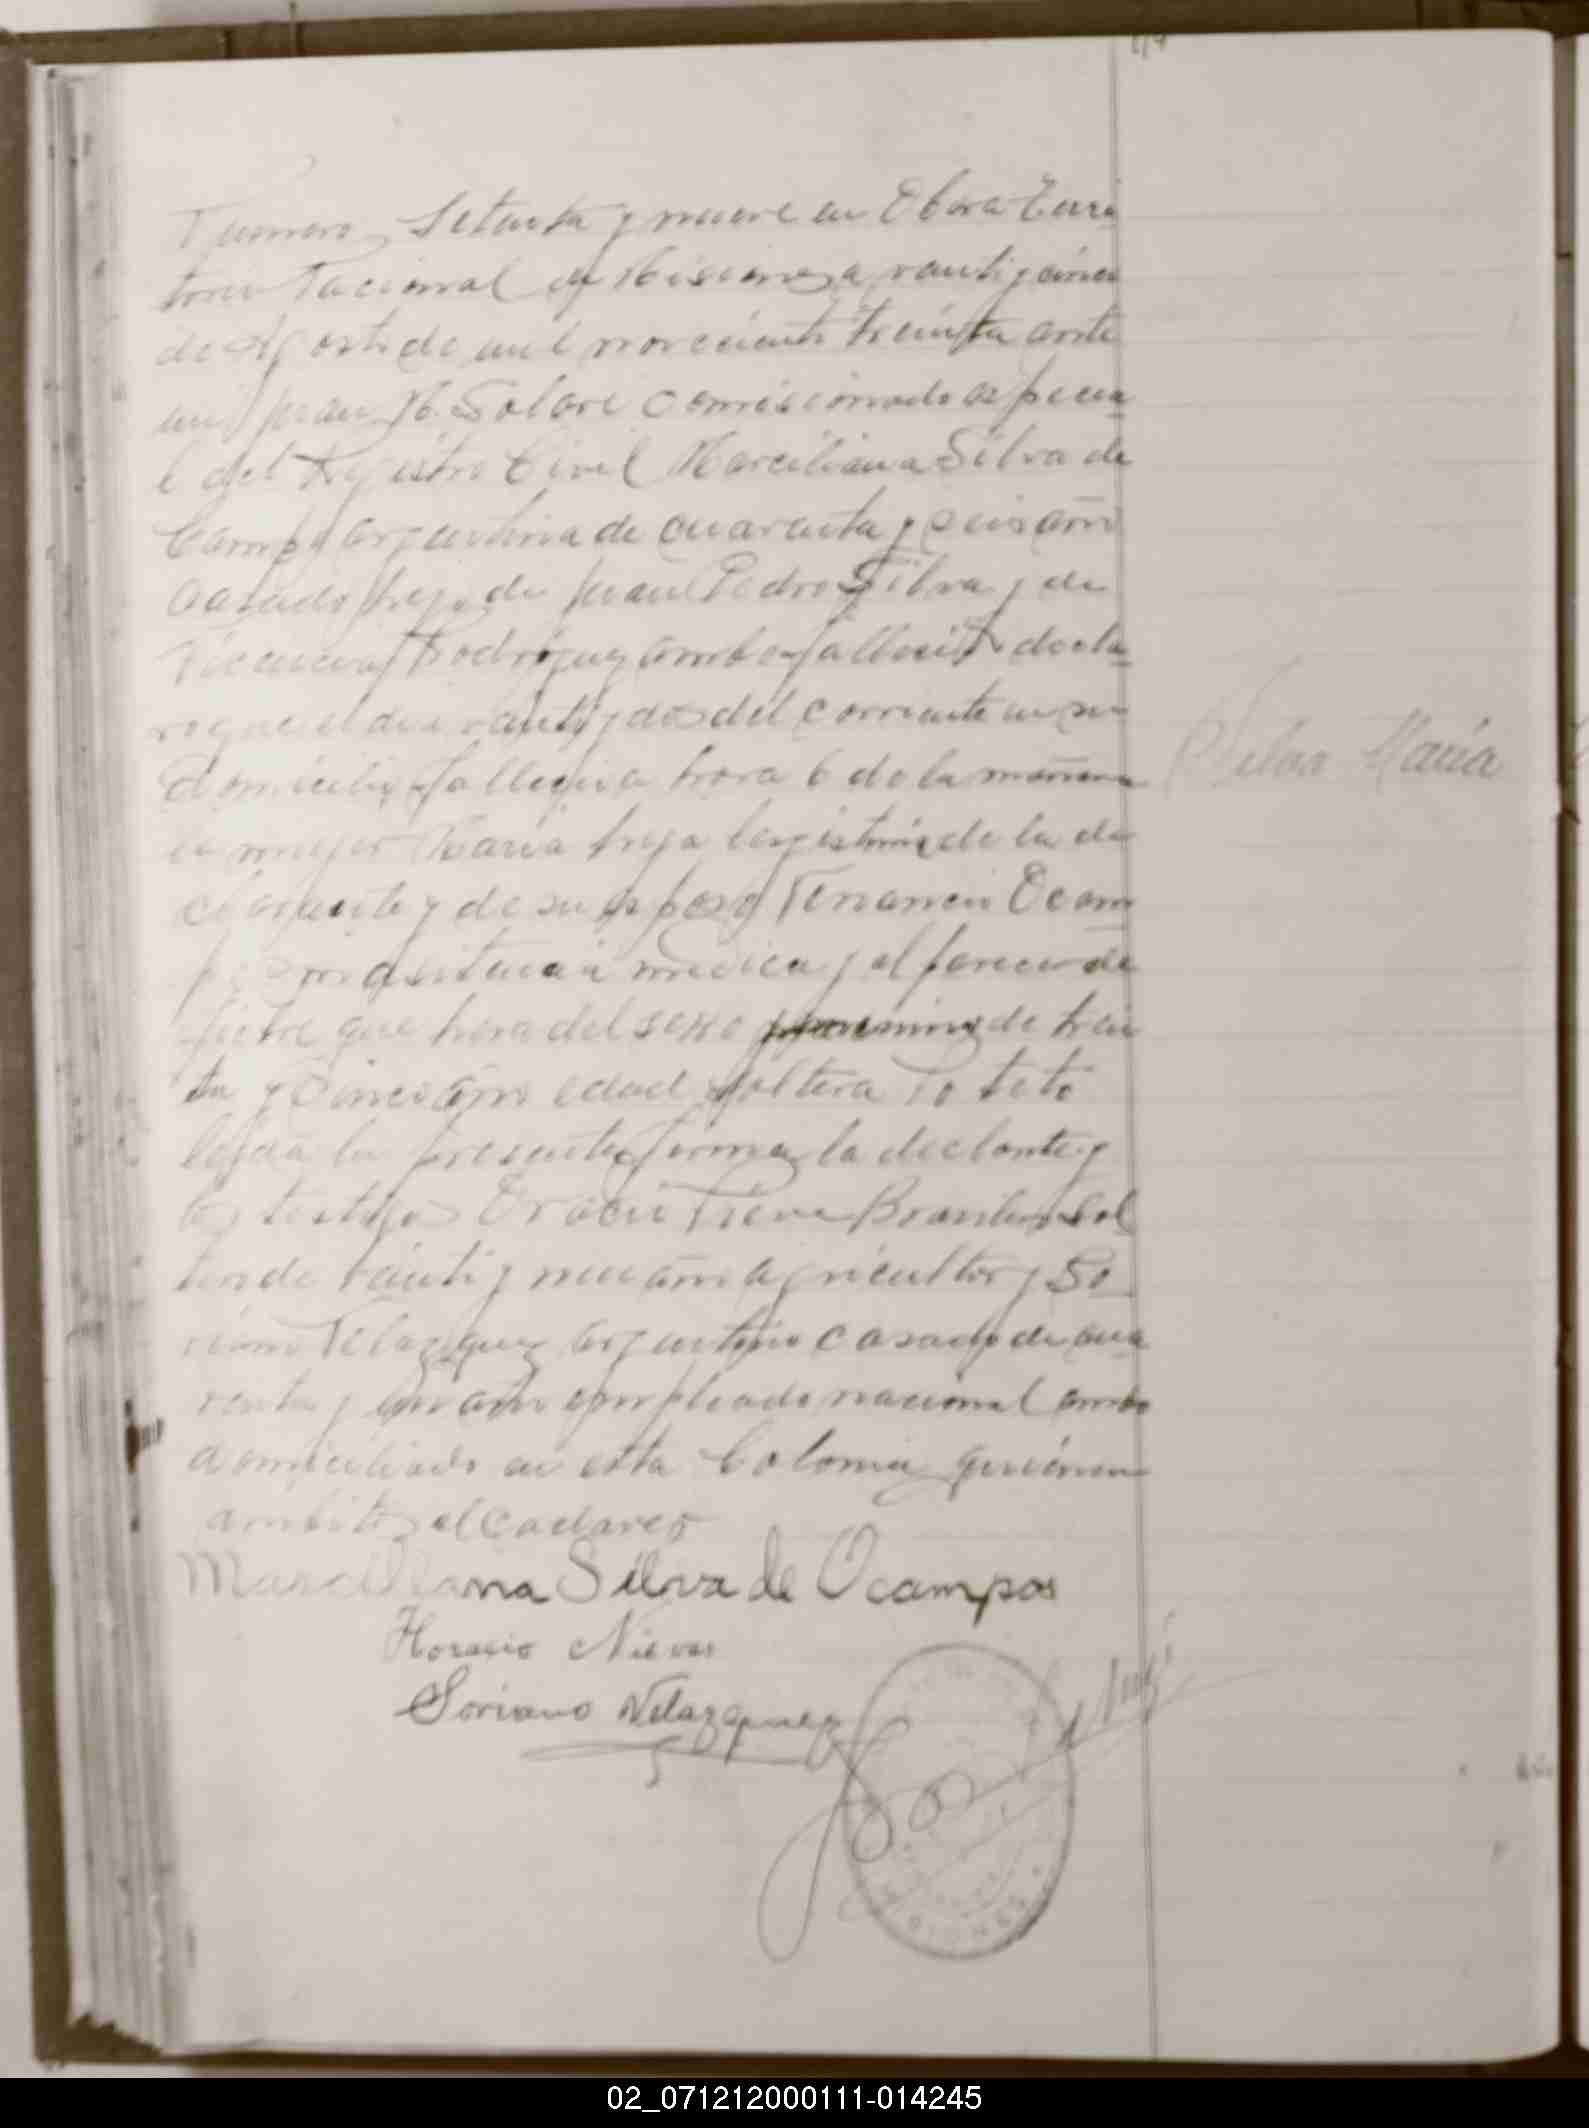 Numero Setenta y nueve en Obera Terri
torio Nacional de Misiones a veinti y cinco
de Agosto de mil novecientos treinta ante
mi Juan M. Solari comisionado especia
l del Registro Civil Marciliana Silva de
Campo argentina de cuarenta y seis años
casado hijo de Juan Pedro Silva y de
Rodriguez ambos fallecido decla
ro que el dia veinti y dos del corriente en su
domicilio fallecia a hora 6 de la mañana
la mujer Maria hija legistima de la de
clarante y de su esposo Venancio Ocam
po asistencia medica y al parecer de
fiebre que hera del sexo femenino de trein
ta y cinco años edad soltera
leida la presente firma la declante y
los testigos Oracio Nieve Brasilero sol
tero de veinti y nueve años agricultor y So
riano Velazquez argentino casado de cua
renta y un años empleado nacional ambo
domiciliado en esta Colonia quienen
ambito el cadarer
Silva Maria
Marciliana Silva de Ocampos
Horacio Nieves
Soriano Velazquez
MISIONES
02_071212000111-014245